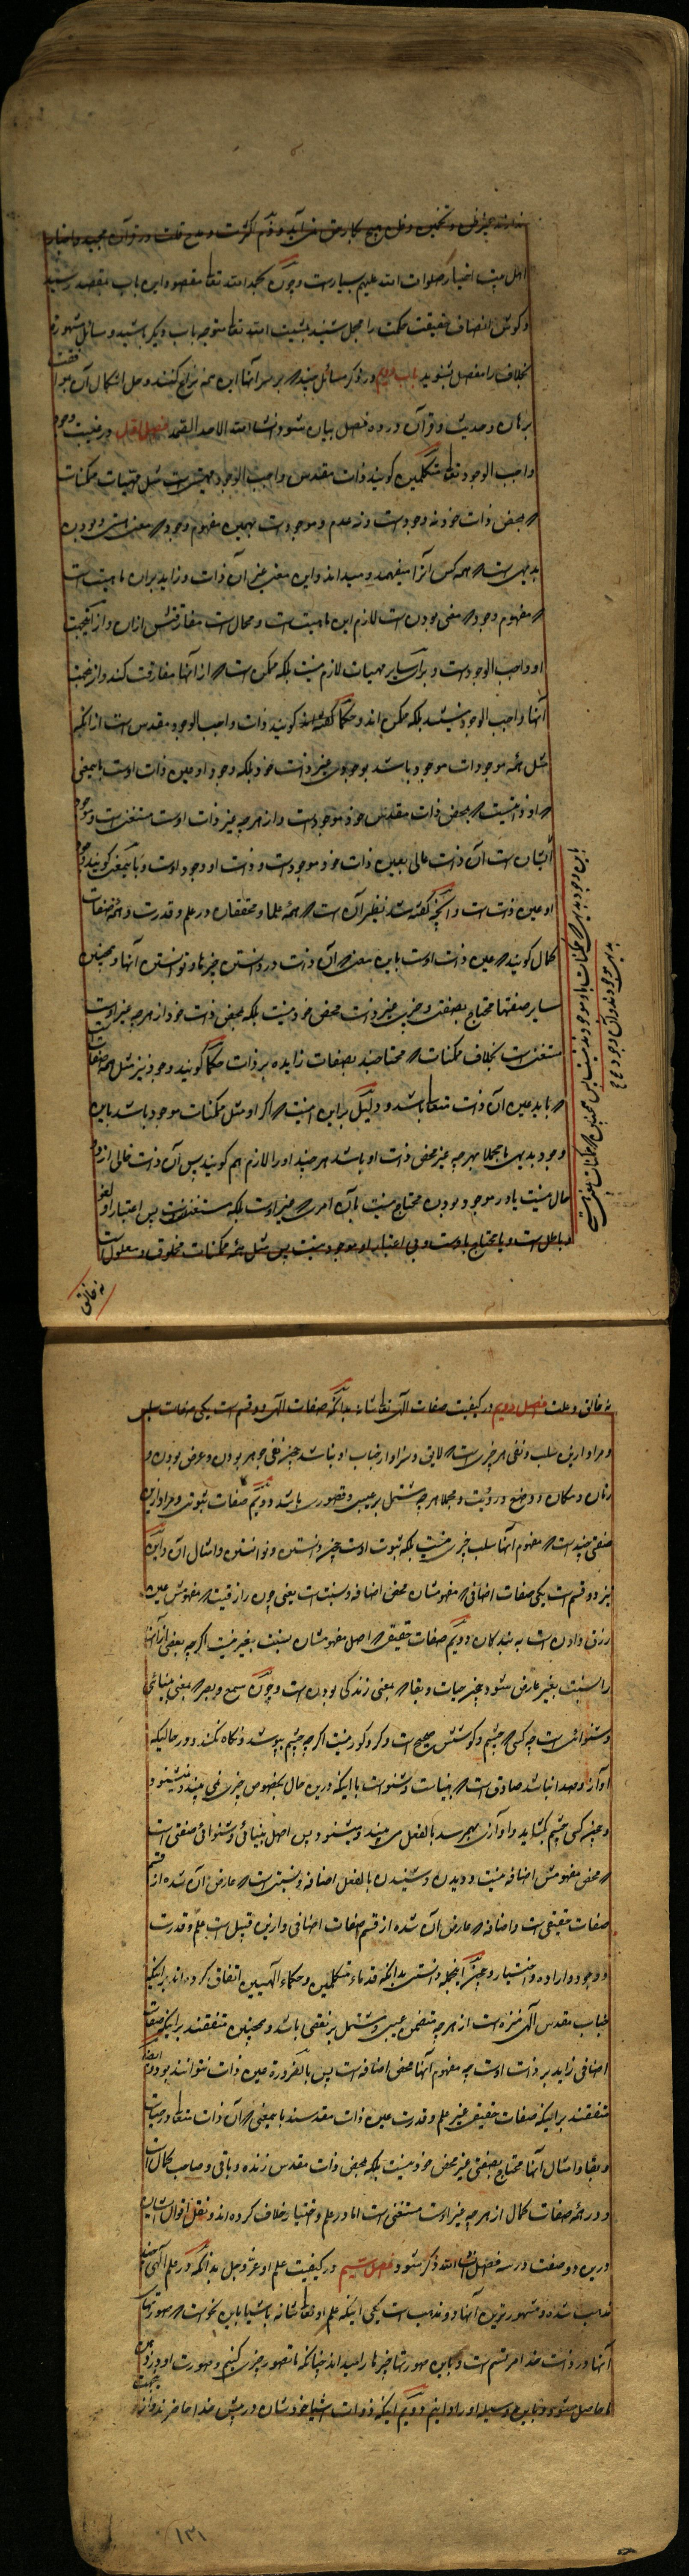 اهل بیت اخیار صلوات الله علیهم بسیارست و چون بحمد الله تعا مقصود این باب مقصد رسید
و کوش انصاف حقیقت حکمت را مجمل شنید بمشیت الله تعا متوجه باب دیگر باشید و مسائل مشهوره
بخلاف را مفصل بشنوید باب دویم در ذکر مسائل چند که بر سر آنها این همه نزاع کنند و حل اشکال آن موافقت
برهان و حدیث و قرآن در ده فصل بیان شود انشا الله الاحد الصمد فصل اول در عینیت وجود
واجب الوجود تعا متکلمین کویند ذات مقدس واجب الوجود مهیتی ست مثل مهیات ممکنات
که بمحض ذات خود نه وجودست و نه عدم و موجودست بهمین مفهوم وجود که معنی هستی و بودن
بدیهی ست که همه کس آنرا میفهمد و میداند و این معنی غیر آن ذات و زاید بران ماهیت است
که مفهوم وجود که معنی بودن ست لازم این ماهیت ست و محال ست مفارقتش ازان و از آنجهت
او واجب الوجودست و برای سایر مهیات لازم نیست بلکه ممکن ست که از آنها مفارقت کند و ازینجهت
آنها واجب الوجود نیستند بلکه ممکن اند و حکما گفته اند کویند ذات واجب الوجود مقدس ست از آنکه
مثل همه موجودات موجود باشد بوجودی غیر ذات خود بلکه وجود او عین ذات اوست باینمعنی
که او ذاتیست که بمحض ذات مقدس خود موجودست و از هر چه غیر ذات اوست مستغنی ست و موجود
انسان ست آن ذات عالی بعین ذات خود موجودست و ذات او وجود اوست و باینمعنی کویند وجود
او عین ذات ست و آنچه گفته شد نظیر آن ست که همه علما و محققان در علم و قدرت و همه صفات
کمال کویند که عین ذات اوست باین معنی که آن ذات در دانستن چیزها و توانستن آنها و همچنین
سایر صفتها محتاج بصفتی و چیزی غیر ذات محض خود نیست بلکه بمحض ذات خود از هر چه غیر اوست
مستغنی ست بخلاف ممکنات که محتاجند بصفات زایده بر ذات حکما کویند وجود نیز مثل همه صفات
که باید عین آن ذات متعا باشد و دلیل بر این اینست که اگر او مثل ممکنات موجود باشد باین
وجود بدیهی یا مجملا بهر چه غیر محض ذات او باشد هر چند او را لازم هم کویند پس آن ذات خالی ازین دو
حال نیست یا در موجود بودن محتاج نیست بآن امر که غیر اوست بلکه مستغنی ست پس اعتبار او لغو
و باطل ست و یا محتاج باوست و بی اعتبار او موجود نیست پس مثل همه ممکنات مخلوق و معلول ست
نه خالق
نه خالق و علت فصل دویم در کیفیت صفات الهی تعا شانه بدانکه صفات الهی دو قسم ست یکی صفات سلبی
و مراد ازین سلب و نفی هر چیزی ست که لایق و سزاوار جناب او نباشد چون نفی جوهر بودن و عرض بودن و
زمان و مکان و وضع و رؤیت و مجملا هر چه مشتمل بر عیبی و قصوری باشد دویم صفات ثبوتی و مراد ازین
صفتی چند است که مفهوم آنها سلب چیزی نیست بلکه ثبوت اوست چون دانستن و توانستن و امثال آن و این
نیز دو قسم ست یکی صفات اضافی که مفهومشان محض اضافه و نسبت ست یعنی چون رازقیت که مفهومش عین
رزق دادن ست به بندکان و دویم صفات حقیقی که اصل مفهومشان نسبت بغیر نیست اگرچه بعضی از آنها
را نسبت بغیر عارض شود چون حیات و بقا که بمعنی زندکی بودن ست و چون سمع و بصر که بمعنی بینائی
و شنوائی ست چه کسی که چشم و کوشش صحیح ست و کر و کور نیست اگر چه چشم بپوشد و نگاه نکند و در حالیکه
آواز و صدا نباشد صادق ست که بیناست و شنواست با اینکه درین حال بخصوص چیزی نمی بیند و نمیشنود و
و چون کسی چشم بکشاید و آوازی بهم رسد بالفعل می بیند و میشنود پس اصل بینائی و شنوائی صفتی ست
که محض مفهومش اضافه نیست و دیدن و شنیدن بالفعل اضافه و نسبتی ست که عارض آن شده از قسم
صفات حقیقی ست و اضافه که عارض آن شده از قسم صفات اضافی و ازین قبیل ست علم و قدرت
و وجود و اراده و اختیار و چون اینجمله دانستی بدانکه قدماء متکلمین و حکماء الهیین اتفاق کرده اند بر اینکه
جناب مقدس الهی منزه ست از هر چه متضمن عیبی و مشتمل بر نقصی باشد و همچنین متفقند بر اینکه صفات
اضافی زاید بر ذات اوست چه مفهوم آنها محض اضافه ست پس بالضرورة عین ذات نتوانند بود و ایضا
متفقند بر اینکه صفات حقیقی غیر علم و قدرت عین ذات مقدسند باینمعنی که آن ذات متعا در حیات
و بقا و امثال آنها محتاج بصفتی غیر محض خود نیست بلکه بمحض ذات مقدس زنده و باقی و صاحب کمال ست
و در همه صفات کمال از هر چه غیر اوست مستغنی ست اما در علم و اختیار خلاف کرده اند و نقل اقوال ایشان
درین دو صفت در سه فصل انشا الله ذکر شود فصل سیم در کیفیت علم او عز و جل بدانکه در علم الهی چند
مذهب شده و مشهورترین آنها دو مذهب ست یکی اینکه علم او تعا شانه باشیا باین نحوست که صورتهای
آنها در ذات خدا مرتسم ست و باین صورتها چیزها را میداند چنانکه ما تصور چیزی کنیم و صورت او در ذهن
ما حاصل میشود و باین وسیله او را دانیم دویم اینکه ذوات اشیا خودشان در پیش خدا حاضرند و از
۱۳۱